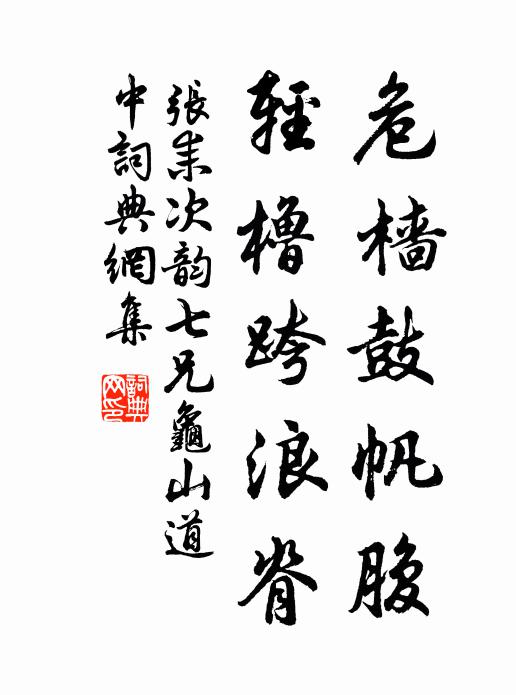 危檣鼓帆腹
輕櫓跨浪脊
張耒次韵七兄龜山道
中詞典網集
詞典
网印